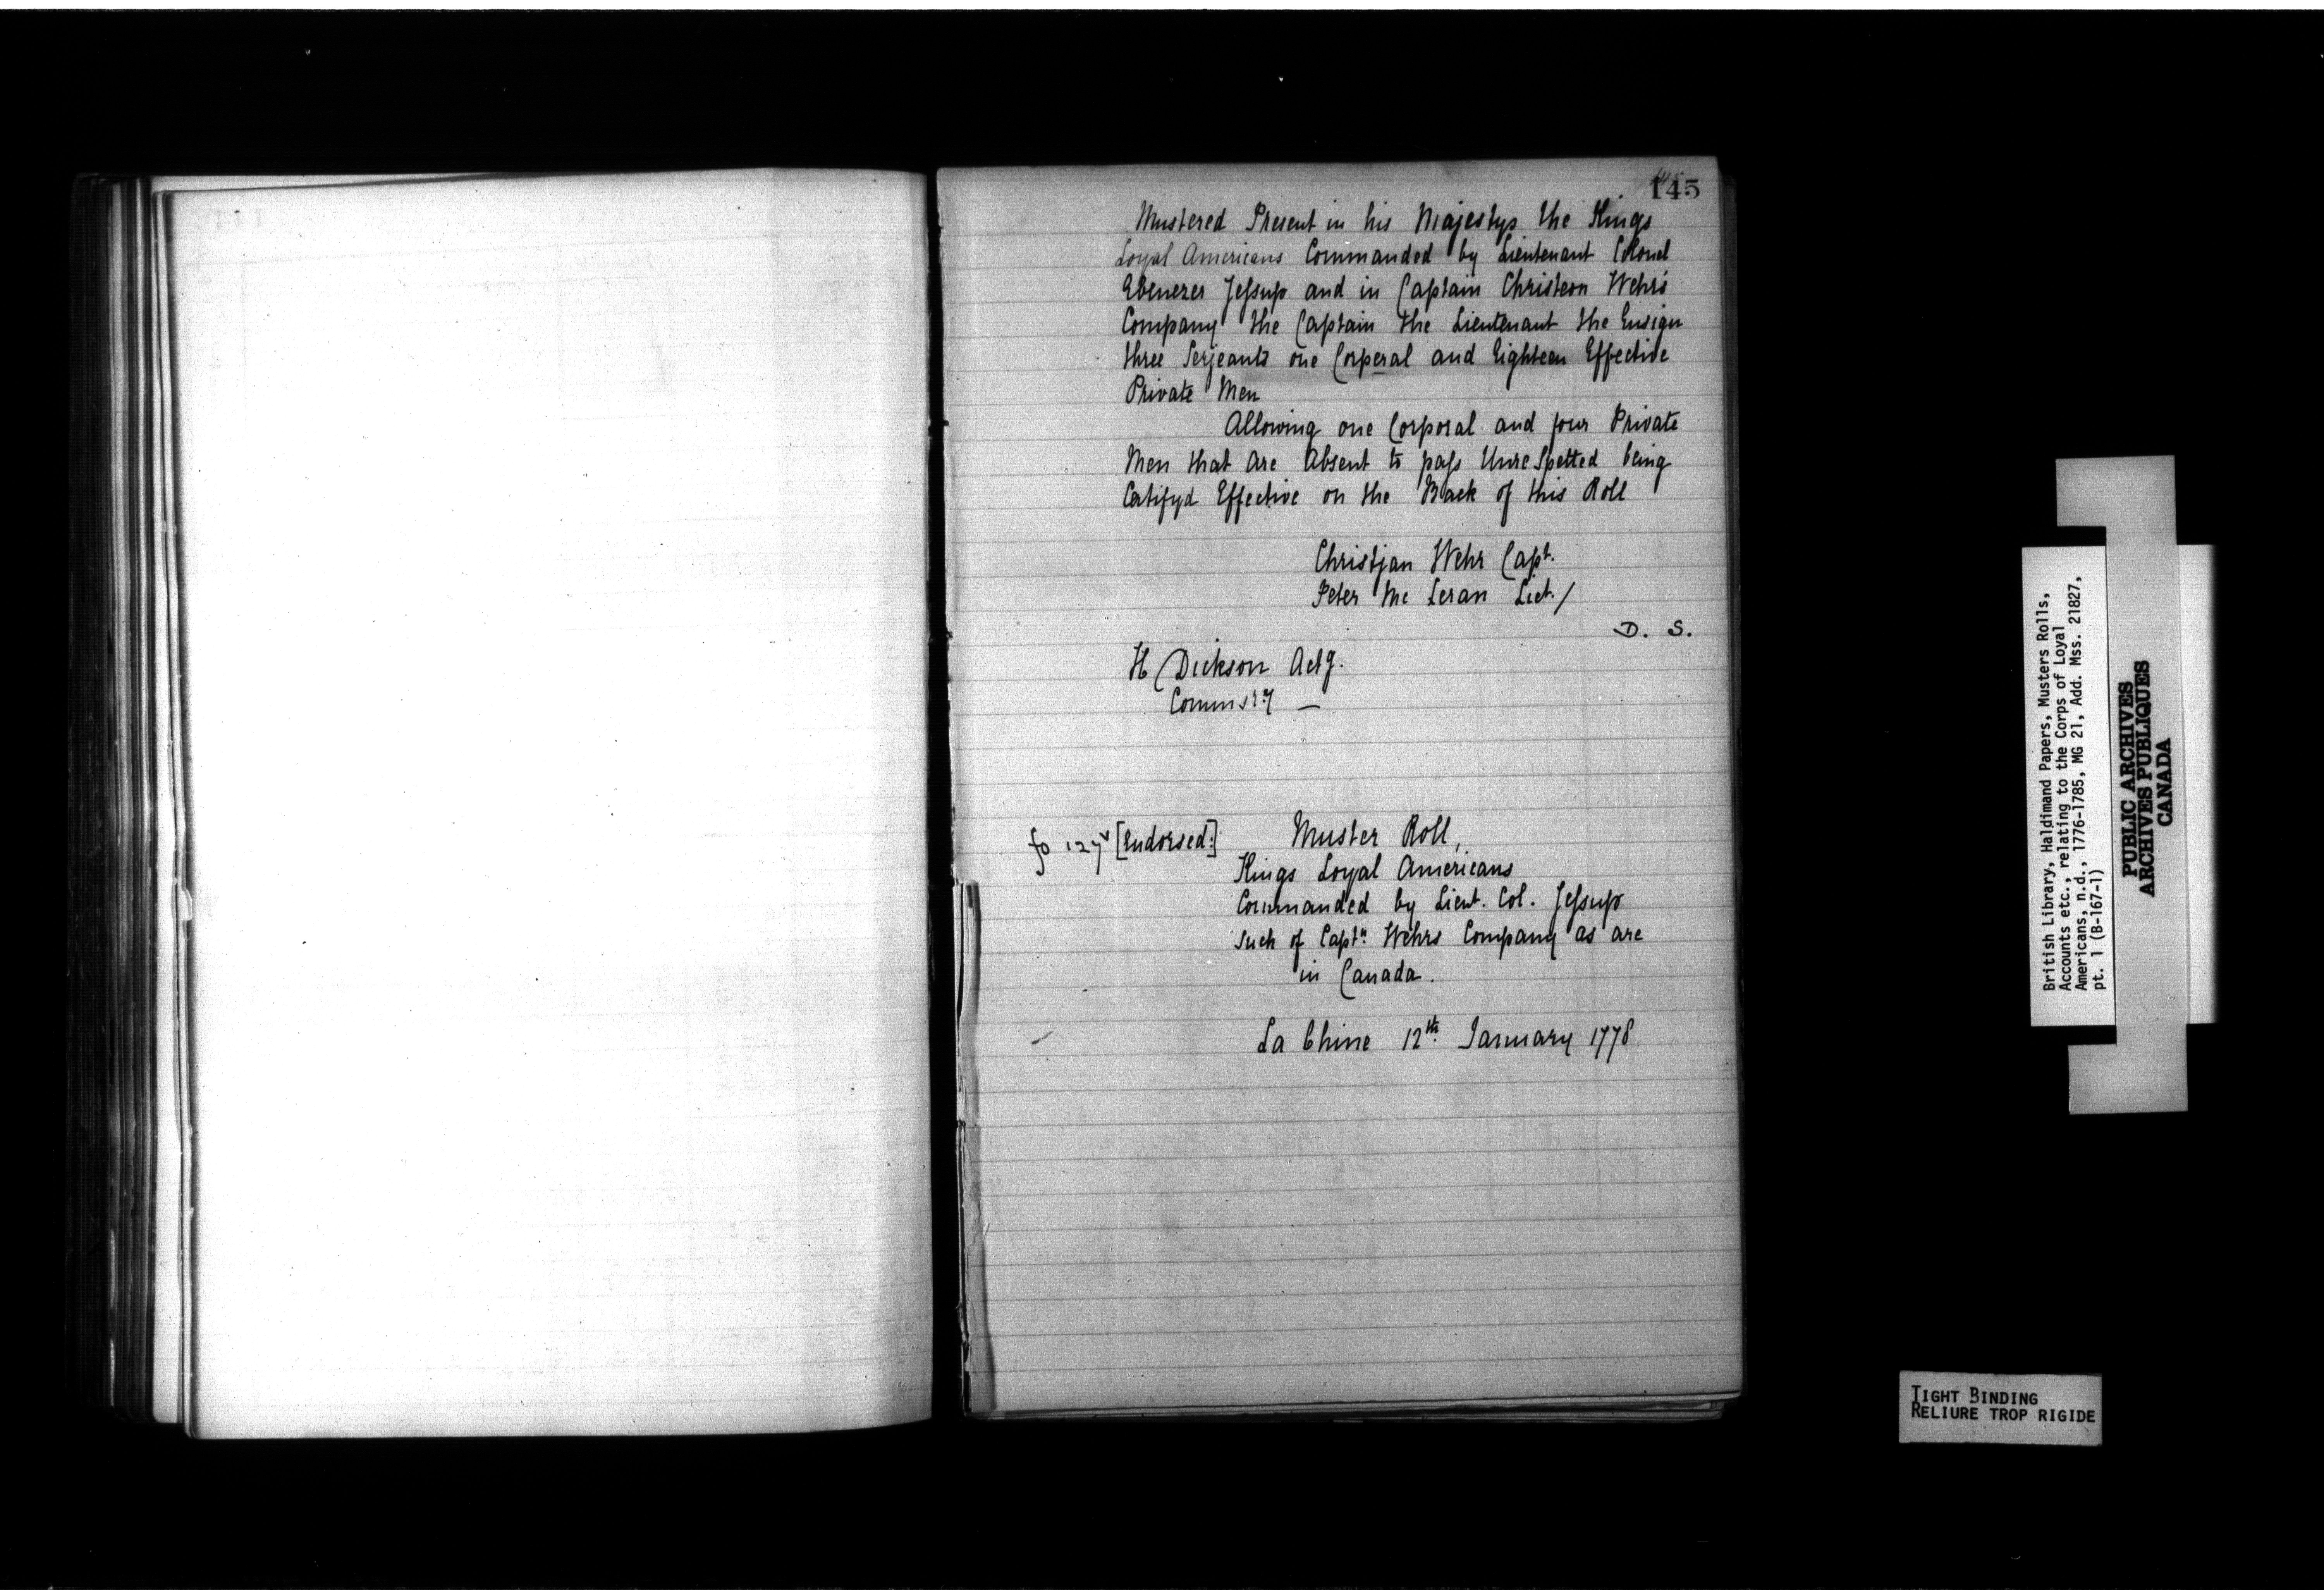 145
Mustered Present in his Majestys the Kings
Loyal Americans Commanded by Lieutenant Colonel
Ebenezer Jessup and in Captain Christeon Wehrs
Company the Captain the Lieutenant the Ensign
three Serjeants one Corperal and Eighteen Effective
Private Men
Allowing one Corporal and four Private
Men that are Absent to pass Unrespetted being
Certifyd Effective on the Back of this Roll
Christjan Wehr Capt.
Peter Mc Leran Liet./
D. S.
H Dickson Actg.
Commsry —
fo 127v [Endorsed:] Muster Roll,
Kings Loyal Americans
Commanded by Lieut. Col. Jessup
such of Captn Wehrs Company as are
in Canada.
La Chine 12th January 1778
British Library, Haldimand Papers, Musters Rolls,
Accounts etc., relating to the Corps of Loyal
Americans, n.d., 1776-1785, MG 21, Add. Mss. 21827,
pt. 1 (B-167-1)
PUBLIC ARCHIVES
ARCHIVES PUBLIQUES
CANADA
TIGHT BINDING
RELIURE TROP RIGIDE